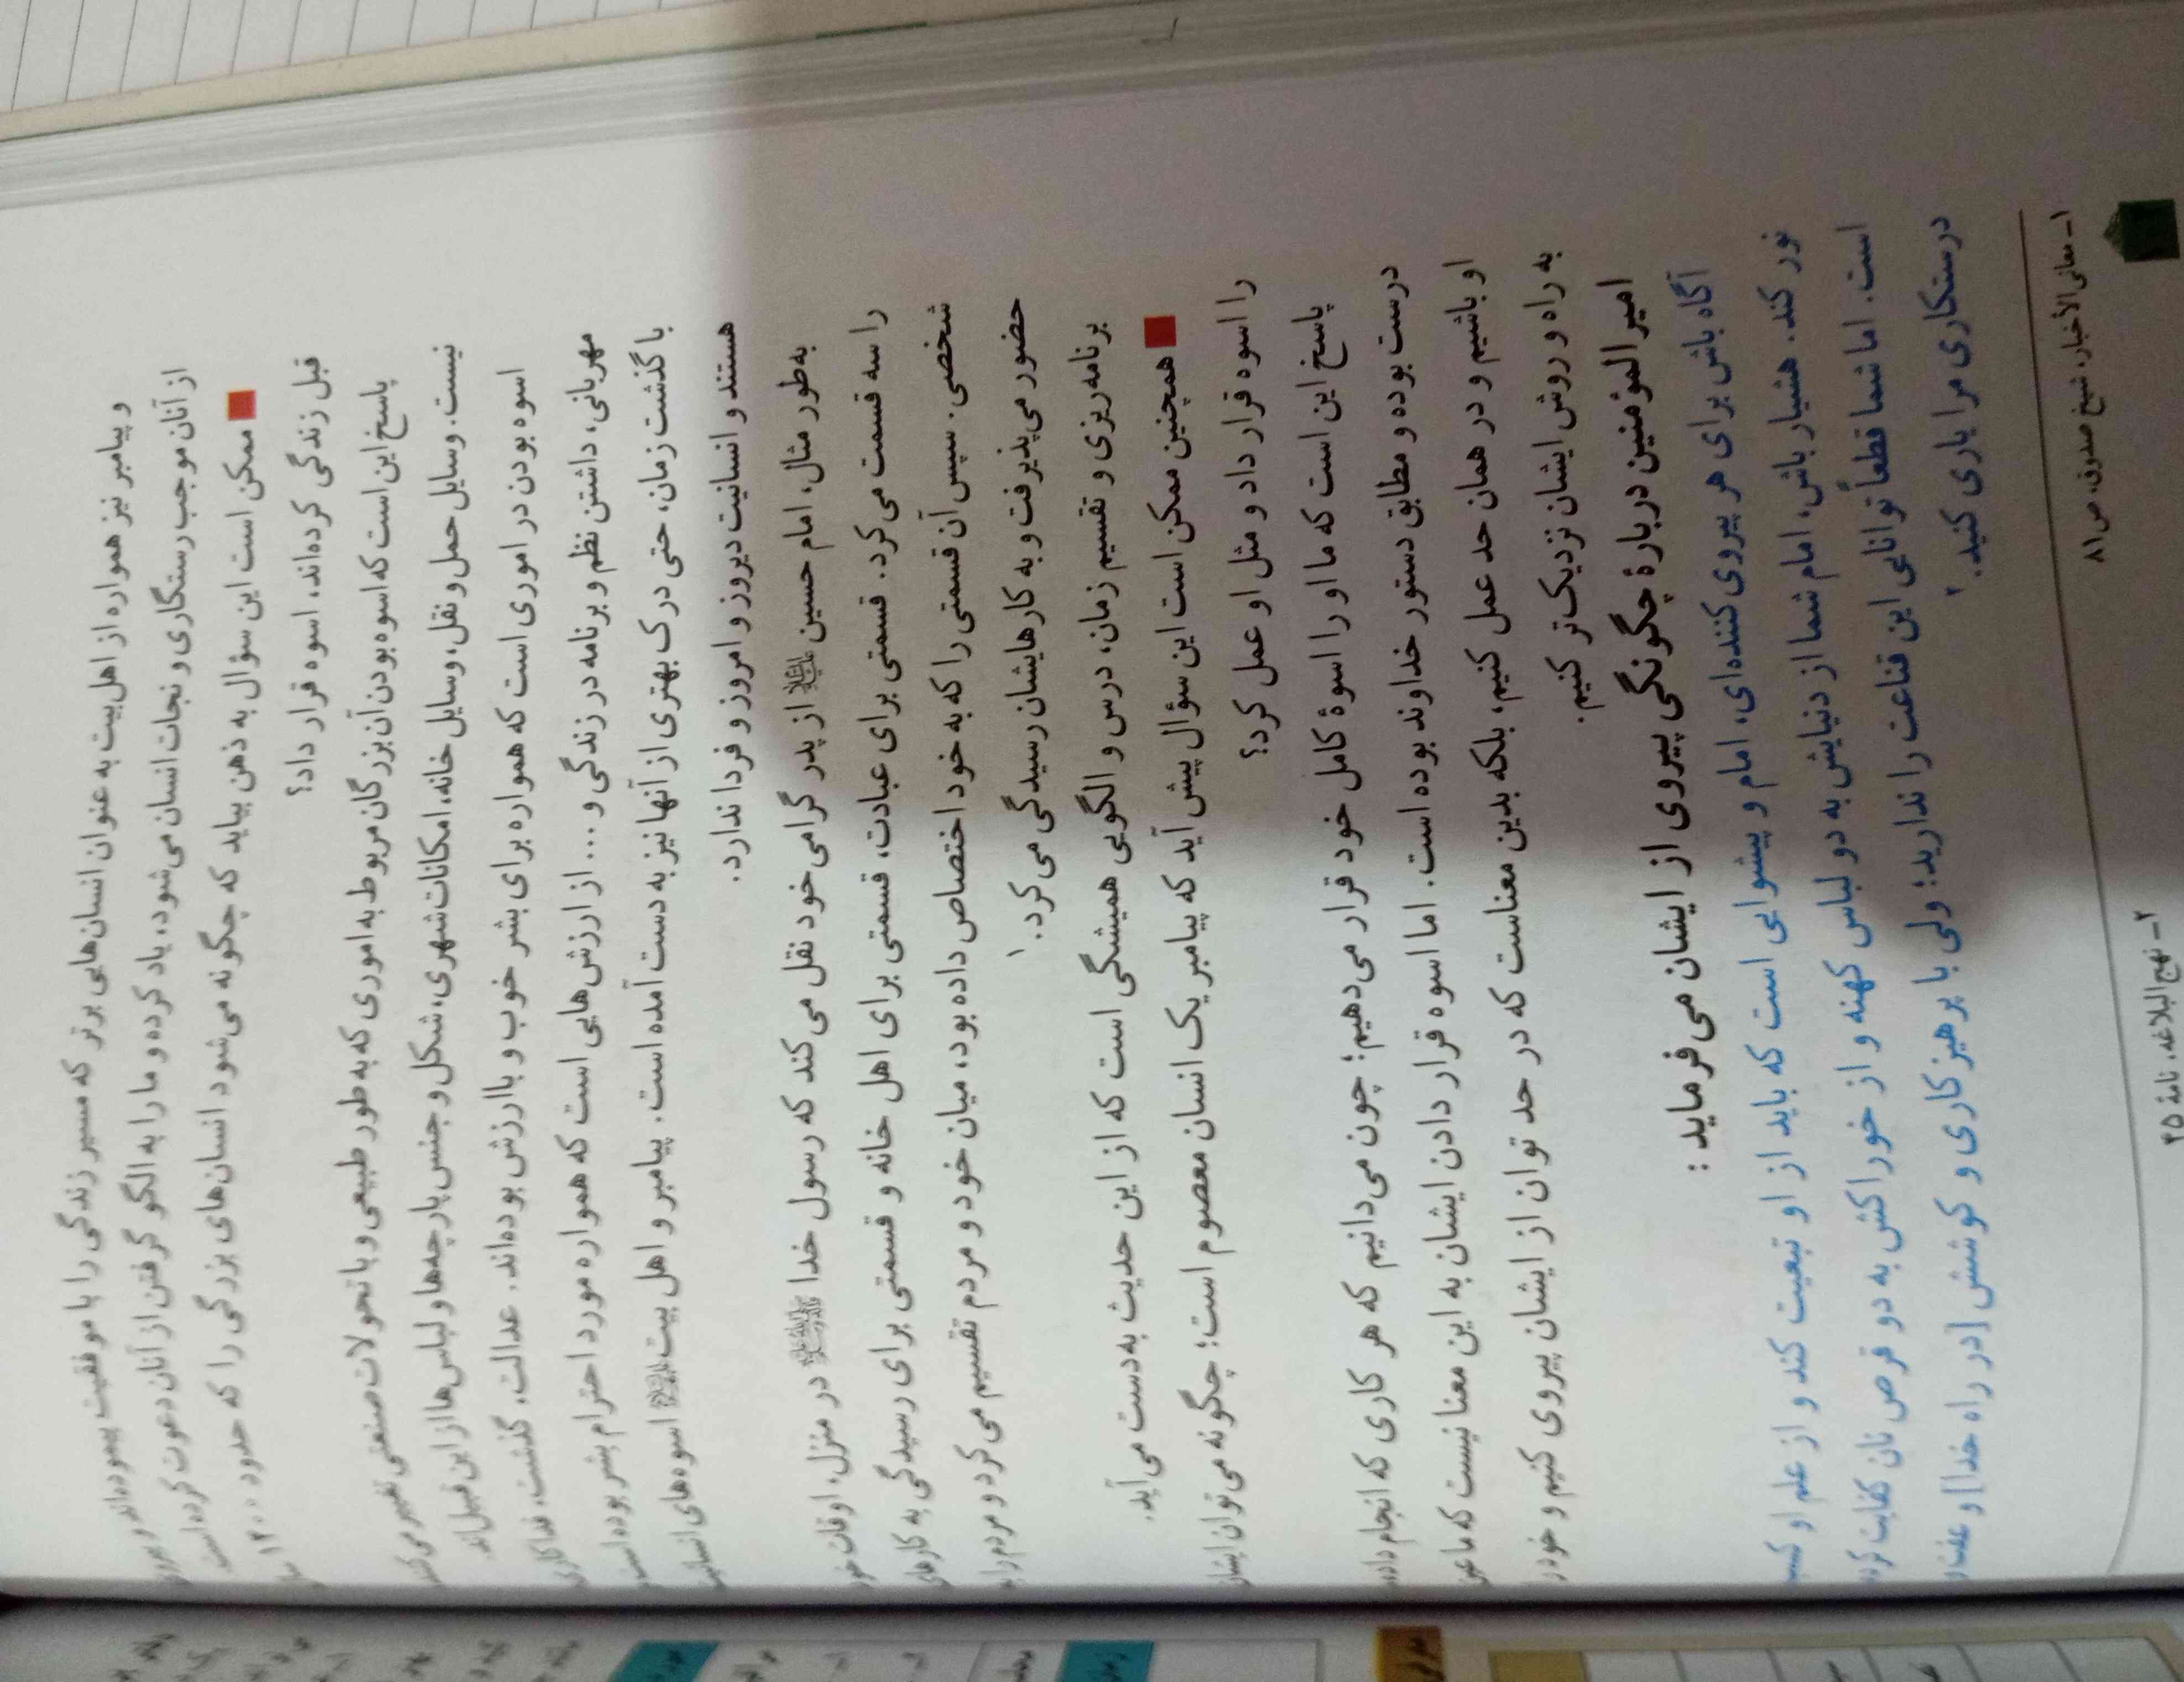 و پیامبر نیز همواره از اهل بیت به عنوان انسان‌هایی برتر که مسیر زندگی را با موفقیت پیموده‌اند و پیروی
از آنان موجب رستگاری و نجات انسان می‌شود، یاد کرده و ما را به الگو گرفتن از آنان دعوت کرده است.
■ ممکن است این سؤال به ذهن بیاید که چگونه می‌شود انسان‌های بزرگی را که حدود ۱۴۰۰
قبل زندگی کرده‌اند، اسوه قرار داد؟
پاسخ این است که اسوه بودن آن بزرگان مربوط به اموری که به طور طبیعی و با تحولات صنعتی تغییر می‌کنند
نیست. وسایل حمل و نقل، وسایل خانه، امکانات شهری، شکل و جنس پارچه‌ها و لباس‌ها از این قبیل‌اند.
اسوه بودن در اموری است که همواره برای بشر خوب و باارزش بوده‌اند. عدالت، گذشت، فداکاری،
مهربانی، داشتن نظم و برنامه در زندگی و ... از ارزش‌هایی است که همواره مورد احترام بشر بوده است و
با گذشت زمان، حتی درک بهتری از آنها نیز به دست آمده است. پیامبر و اهل بیت اسوه‌های انسانیت
هستند و انسانیت دیروز و امروز و فردا ندارد.
به‌طور مثال، امام حسین از پدر گرامی خود نقل می‌کند که رسول خدا در منزل، اوقات خود
را سه قسمت می‌کرد. قسمتی برای عبادت، قسمتی برای اهل خانه و قسمتی برای رسیدگی به کارهای
شخصی. سپس آن قسمتی را که به خود اختصاص داده بود، میان خود و مردم تقسیم می‌کرد و مردم را به
حضور می‌پذیرفت و به کارهایشان رسیدگی می‌کرد.۱
برنامه‌ریزی و تقسیم زمان، درس و الگویی همیشگی است که از این حدیث به‌دست می‌آید.
■ همچنین ممکن است این سؤال پیش آید که پیامبر یک انسان معصوم است؛ چگونه می‌توان ایشان
را اسوه قرار داد و مثل او عمل کرد؟
پاسخ این است که ما او را اسوهٔ کامل خود قرار می‌دهیم؛ چون می‌دانیم که هر کاری که انجام داده
درست بوده و مطابق دستور خداوند بوده است. اما اسوه قرار دادن ایشان به این معنا نیست که ما عین
او باشیم و در همان حد عمل کنیم، بلکه بدین معناست که در حد توان از ایشان پیروی کنیم و خود را
به راه و روش ایشان نزدیک‌تر کنیم.
امیرالمؤمنین دربارهٔ چگونگی پیروی از ایشان می‌فرماید :
آگاه باش برای هر پیروی کننده‌ای، امام و پیشوایی است که باید از او تبعیت کند و از علم او کسب
نور کند. هشیار باش، امام شما از دنیایش به دو لباس کهنه و از خوراکش به دو قرص نان کفایت کرده
است. اما شما قطعاً توانایی این قناعت را ندارید؛ ولی با پرهیزکاری و کوشش [در راه خدا] و عفت و
درستکاری مرا یاری کنید.۲
۱ــ معانی الأخبار، شیخ صدوق، ص ۸۱
۲ــ نهج البلاغه، نامهٔ ۴۵